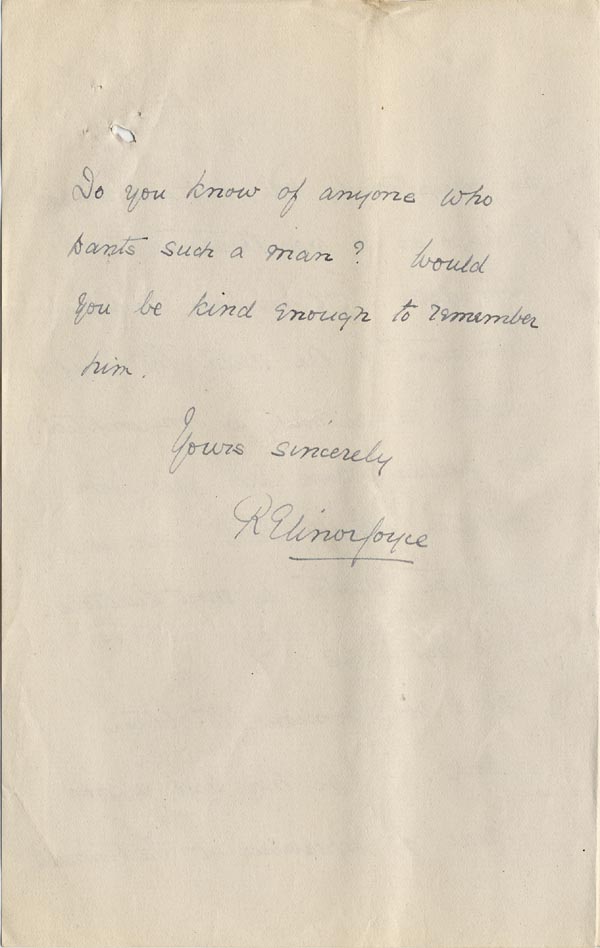 Do you know of anyone who
wants such a man? Would
you be kind enough to remember
him.
Yours sincerely
R Elinor Joyce